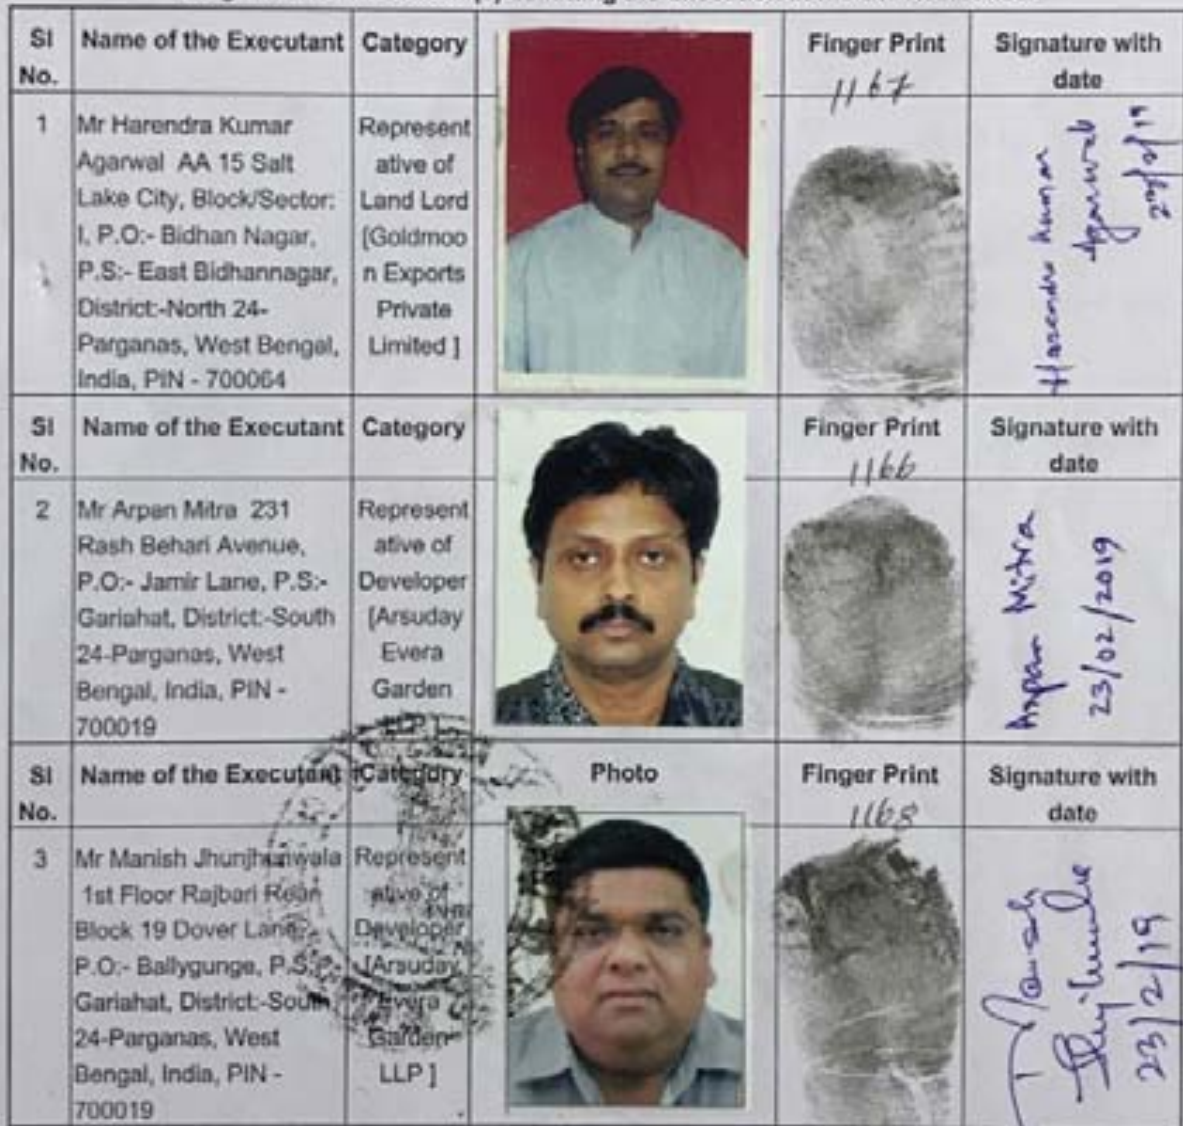 SI No. Name of the Executant Category Finger Print Signature with date
1167
1 Mr Harendra Kumar Agarwal AA 15 Salt Lake City, Block/Sector: I, P.O:- Bidhan Nagar, P.S:- East Bidhannagar, District:-North 24-Parganas, West Bengal, India, PIN - 700064
Representative of Land Lord [Goldmoon Exports Private Limited ]
Harendra Kumar
Agarwal
SI No. Name of the Executant Category Finger Print Signature with date
1166
2 Mr Arpan Mitra 231 Rash Behari Avenue, P.O:- Jamir Lane, P.S:- Gariahat, District:-South 24-Parganas, West Bengal, India, PIN - 700019
Representative of Developer [Arsuday Evera Garden LLP ]
Arpan Mitra
23/02/2019
SI No. Name of the Executant Category Photo Finger Print Signature with date
1168
3 Mr Manish Jhunjhunwala 1st Floor Rajbari Block 19 Dover Lane, P.O:- Ballygunge, P.S:- Gariahat, District:-South 24-Parganas, West Bengal, India, PIN - 700019
Representative of Developer [Arsuday Evera Garden LLP ]
23/2/19